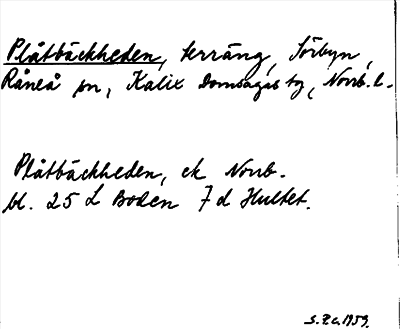 Plåtbäckheden, terräng, Sörbyn,
Råneå sn, Kalix Domsagas tg, Norrb. l.
Plåtbäckheden, ek Norrb.
bl. 25 L Boden 7 d Hultet.
1959.